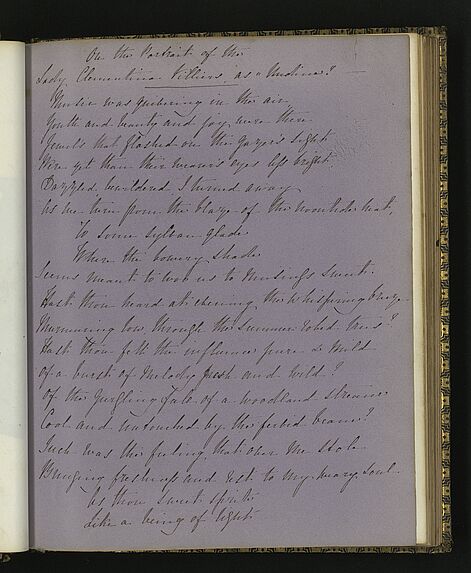 On the Portrait of the
Lady Clementina Villiers as "Undine"
Music was quivering in the air,
Youth and beauty and joy, were there
Jewels that flashed on the gazer's sight
Were yet than their wearer's eyes less bright
Dazzled, bewildered I turned away
As we turn from the blaze of the noontide heat,
To some sylvan glade
Where the bowery shade
Seems meant to woo us to musings sweet.
Hast thou heard at evening the whispering breeze
Murmuring low, through the summer robed trees?
Hast thou felt the influence pure & mild
of a burst of Melody fresh and wild?
Of the gurgling fale of a woodland stream
Cool and untouched by the fervid beam?
Such was the feeling that over me stole
Bringing freshness and rest to my weary soul.
As thou sweet spirit
Like a being of light